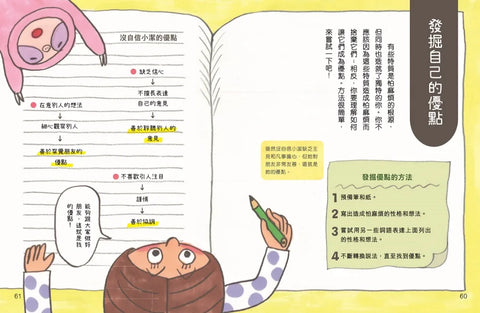 發掘自己的優點
有些特質是怕麻煩的根源，
但同時也造就了獨特的你。你不
應該因為這些特質造成怕麻煩而
捨棄它們。相反，你要理解如何
讓它們成為優點。方法很簡單，
來嘗試一下吧！
雖然沒自信小潔缺乏主
見和凡事擔心，但她對
朋友非常友善，這就是
她的優點。
發掘優點的方法
1 預備筆和紙。
2 寫出造成怕麻煩的性格和想法。
3 嘗試用另一些詞語表達上面列出
的性格和想法。
4 不斷轉換說法，直至找到優點。
60
沒自信小潔的優點
缺乏信心
不擅長表達
自己的意見
善於聆聽別人的
意見
在意別人的想法
細心觀察別人
善於察覺朋友的
優點
不喜歡引人注目
謹慎
善於協調
能夠跟大家做好
朋友，這就是我
的優點！
61